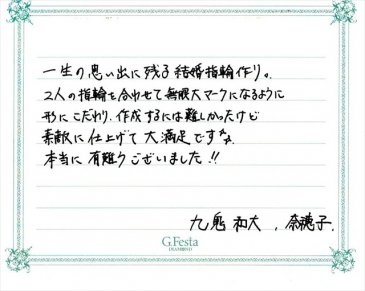 一生の思い出に残る結婚指輪作り。
2人の指輪を合わせて無限大マークになるように
形にこだわり、作成するには難しかったけど
素敵に仕上げて大満足ですな
本当に有難うございました!!
九鬼 和大 , 奈穂子.
G.Festa
DIAMOND